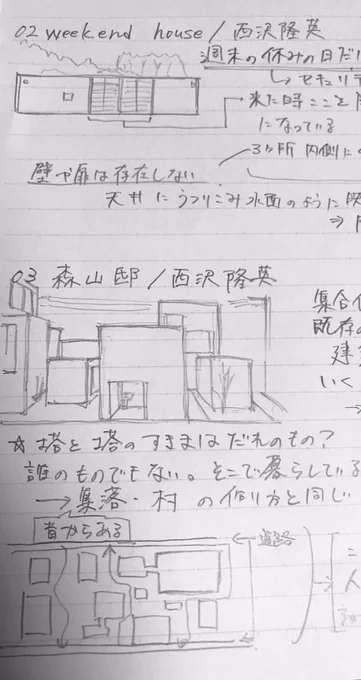 02 weekend house / 西沢隆英
週末の休みの日だけ
↳ セキュリテ
来た時ここを
になっている
3ヶ所 内側に
壁や扉は存在しない
天井にうつりこみ 水面のように映
⇒
03 森山邸 / 西沢隆英
集合住
既存の
建
いく
☆塔と塔のすきまはだれのもの?
誰のものでもない。そこで暮らしている
→ 集落・村 の作り方と同じ
昔からある
← 道路
人